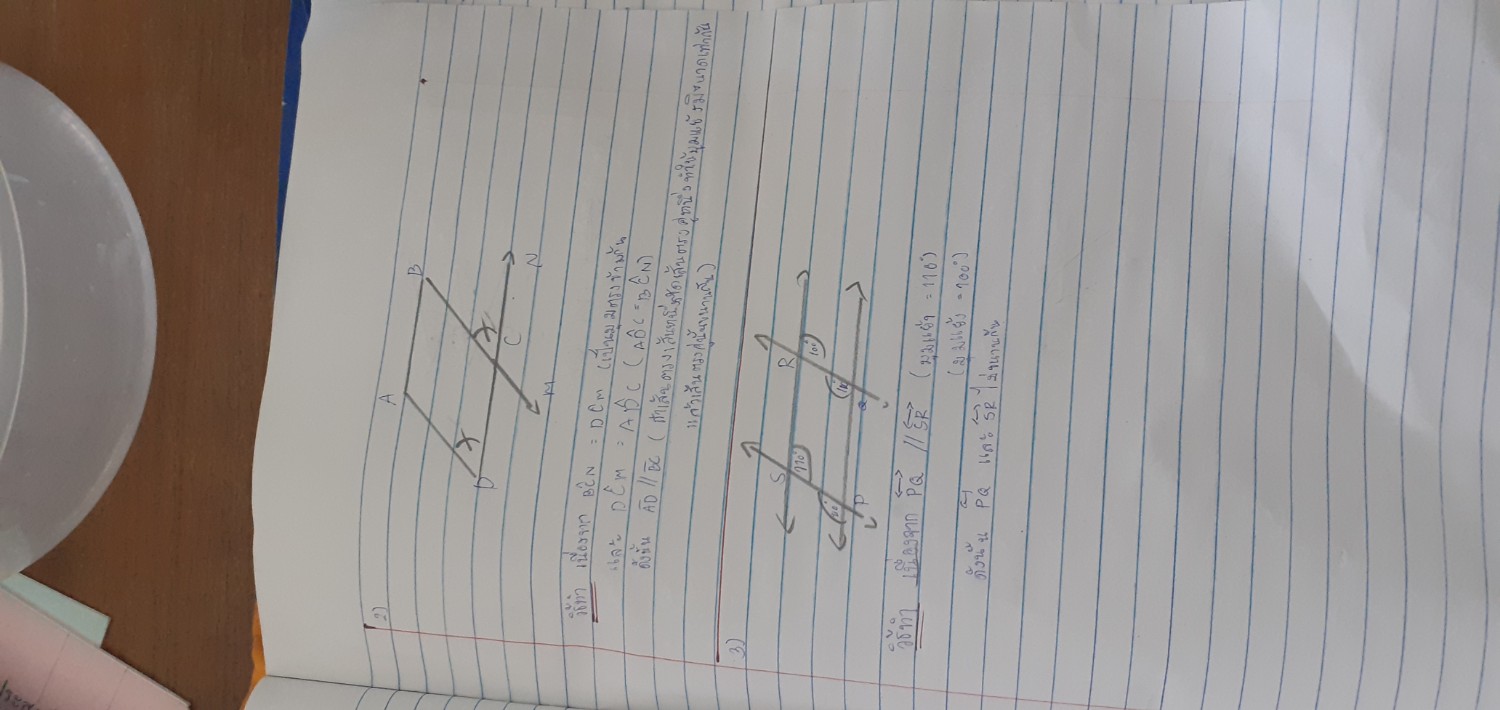 2)
A
B
D
C
M
N
วิธีทำ เนื่องจาก BĈN = DĈM (เป็นมุมตรงข้ามกัน
และ DĈM = AD̂C (AD̂C = BĈN)
ดังนั้น AD // BC (ถ้าเส้นตรงเส้นหนึ่งตัดเส้นตรงคู่หนึ่ง ทำให้มุมแย้งมีขนาดเท่ากัน
แล้วเส้นตรงคู่นั้นขนานกัน)
3)
S
R
110°
100°
P
Q
วิธีทำ เนื่องจาก PQ // SR (มุมแย้ง = 110°)
(มุมแย้ง = 100°)
ดังนั้น PQ และ SR ขนานกัน